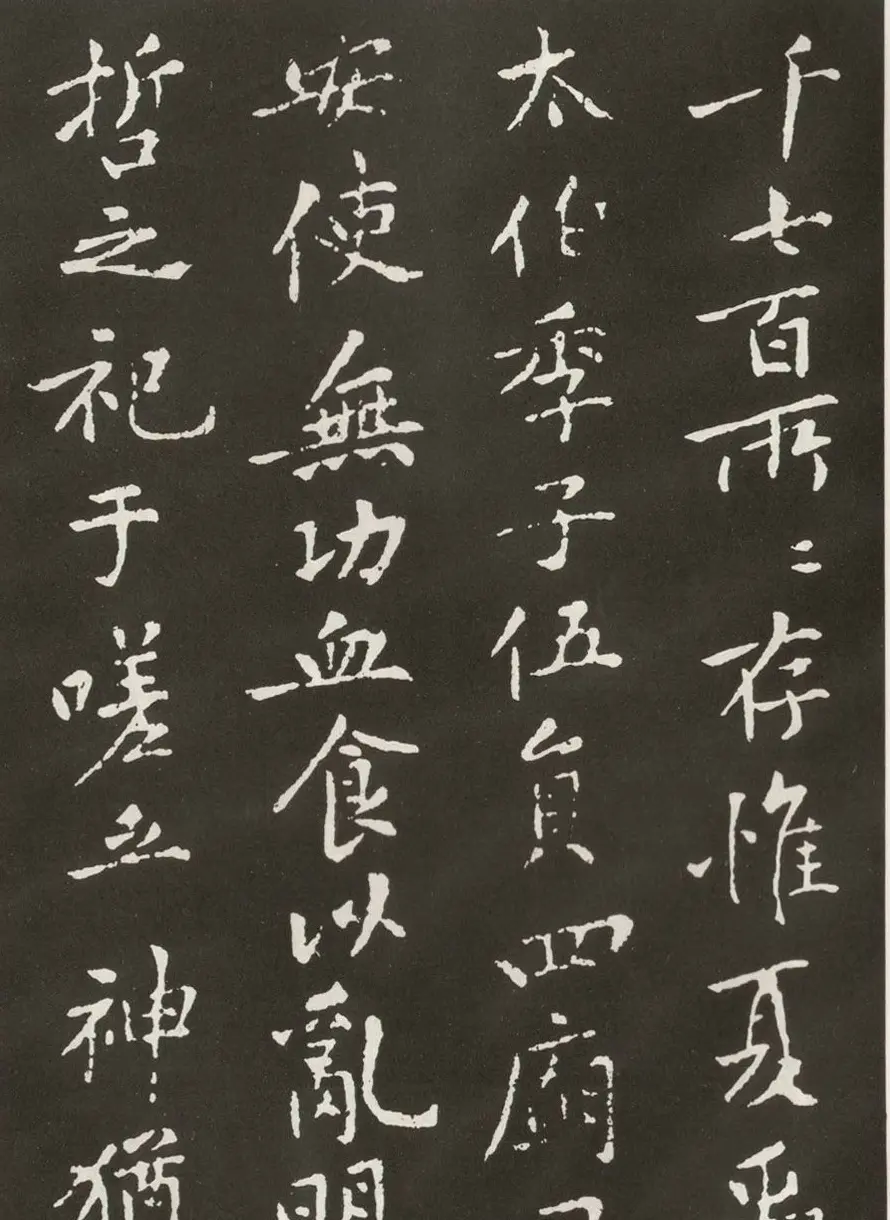 千七百所〻存惟夏禹
太伯季子伍員四廟
安使無功血食以亂明
哲之祀于嗟乎神猶